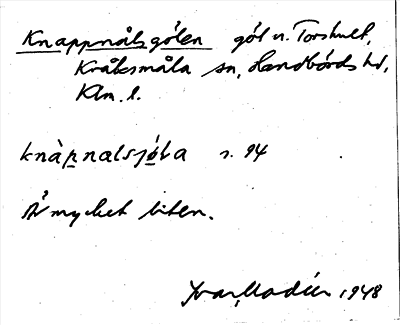 Knappnålsgölen göl v. Torshult,
Kråksmåla sn, Handbörds hd,
Klm. l.
knàpnalsjøla s. 94
Är mycket liten.
Ivar Modéer 1948